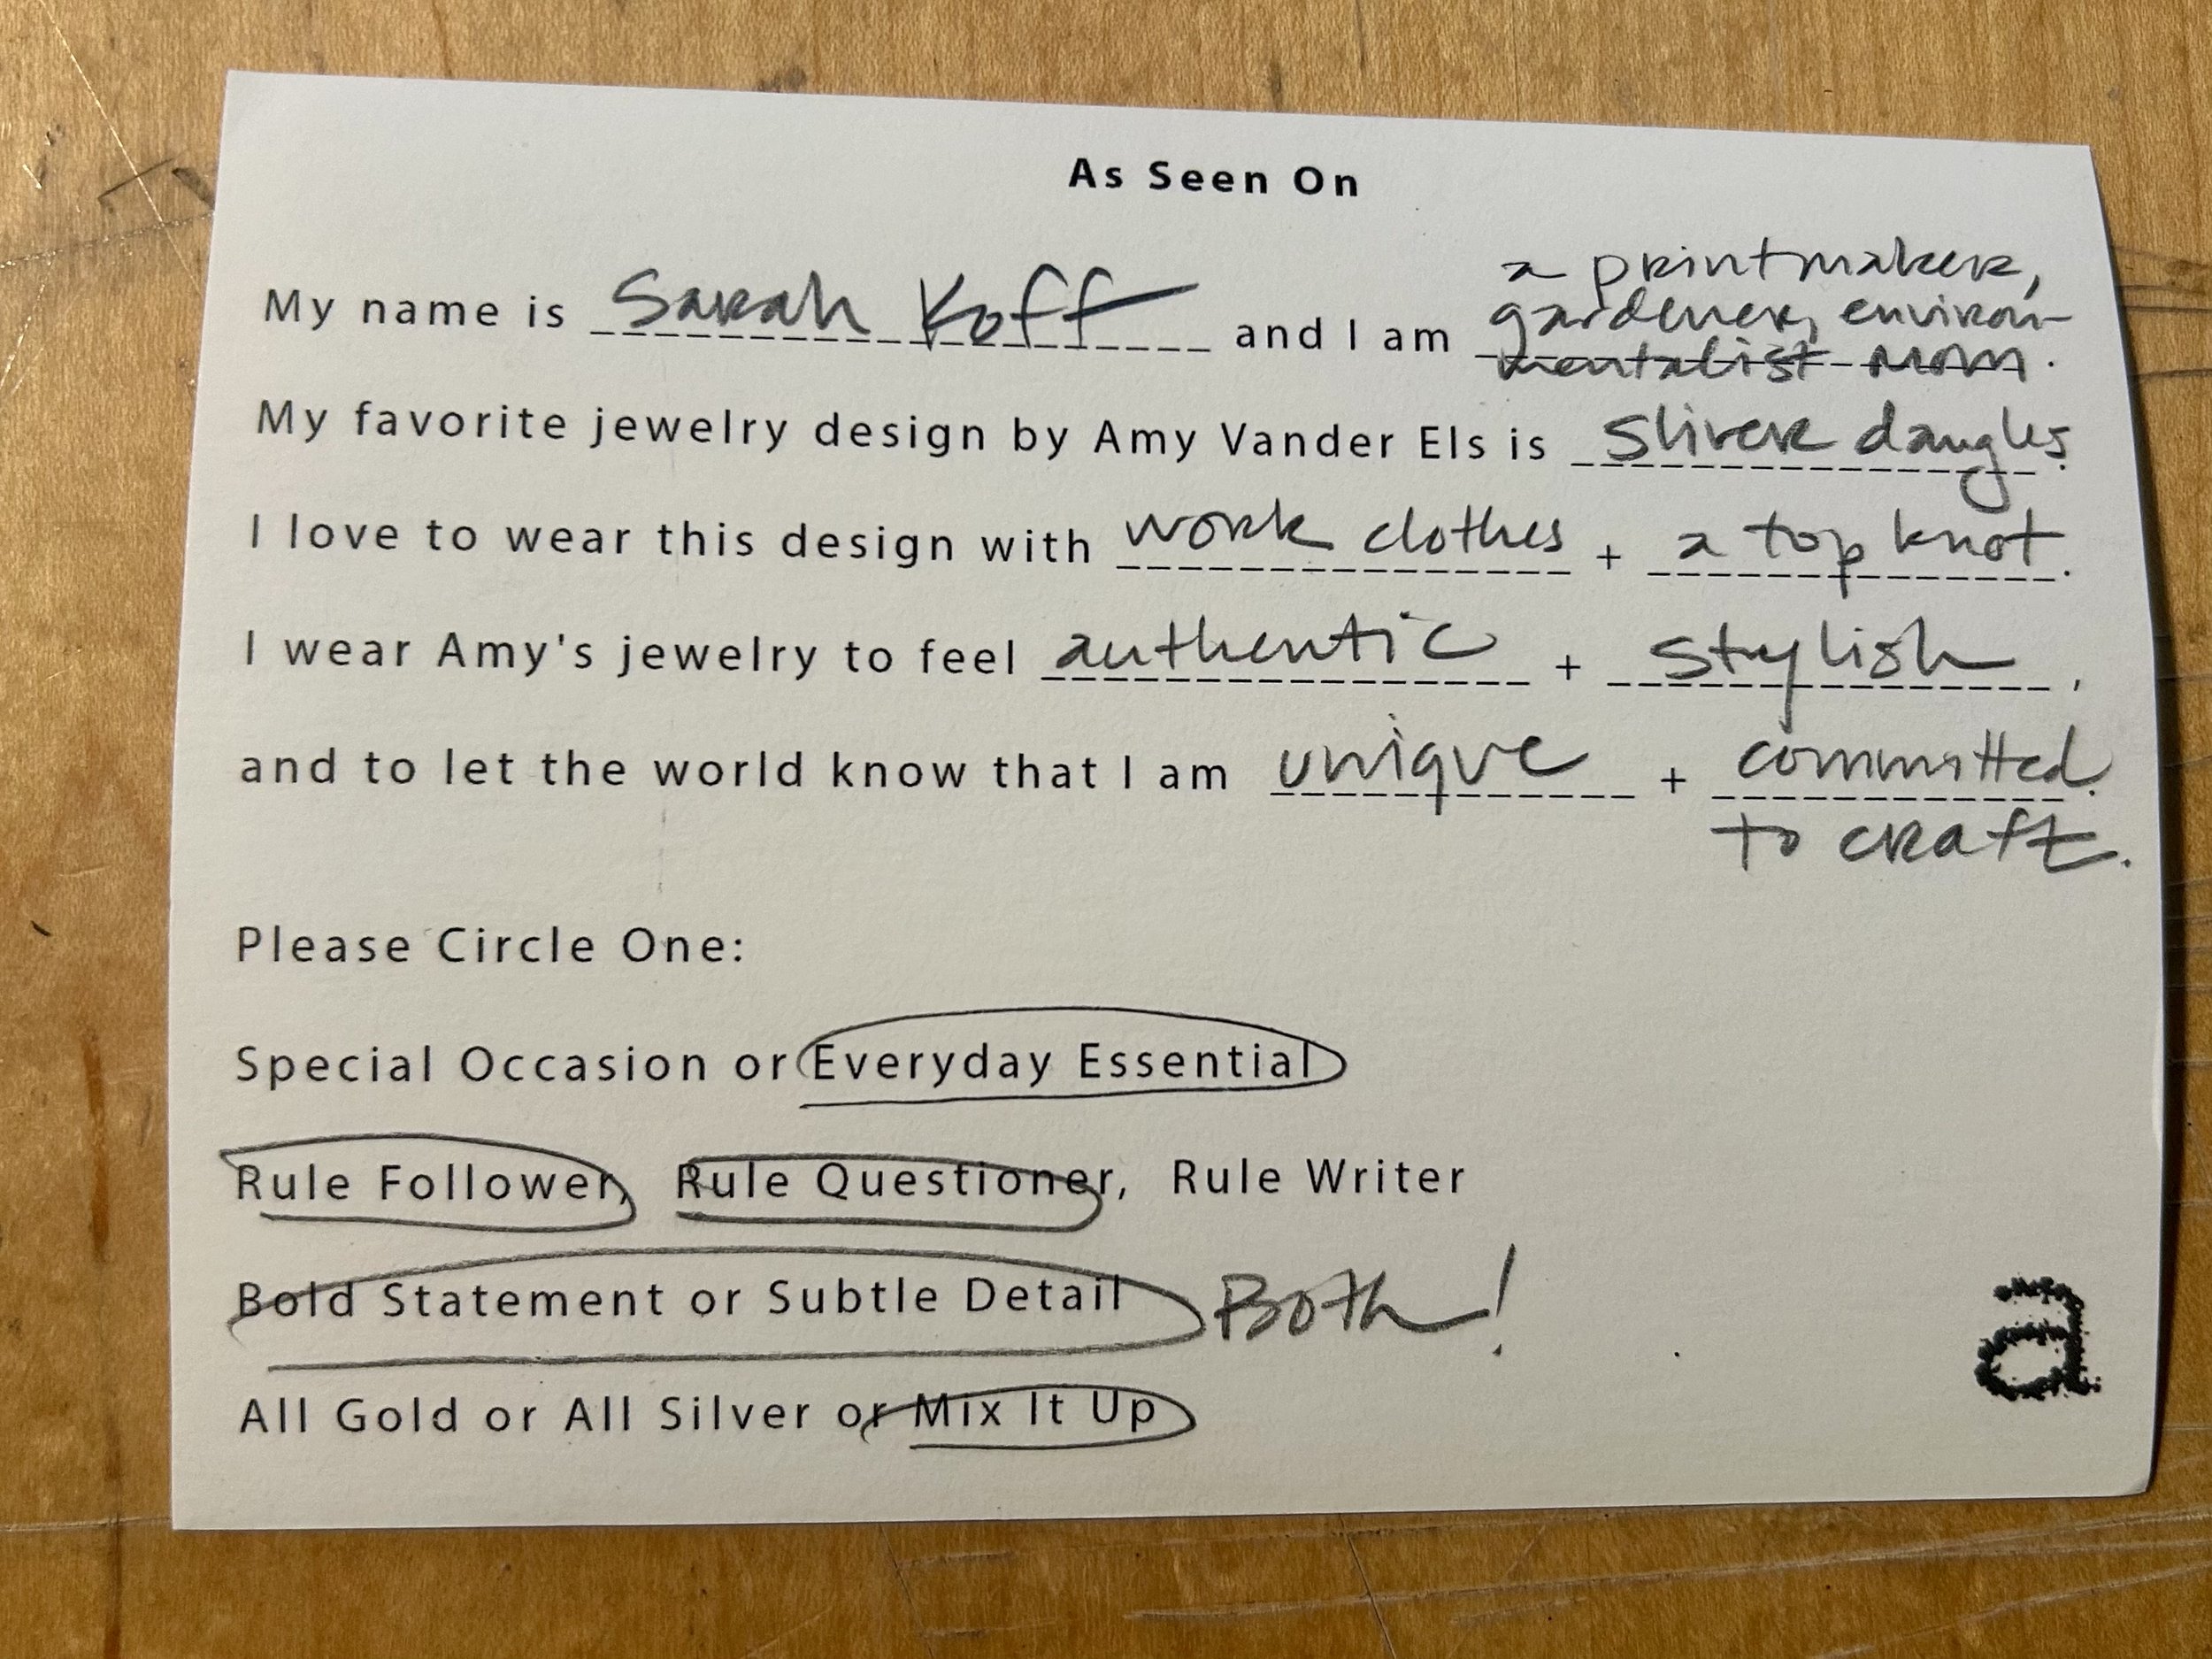 As Seen On
a printmaker,
My name is Sarah Koff and I am gardener, environ-
mentalist mom.
My favorite jewelry design by Amy Vander Els is sliver dangles.
I love to wear this design with work clothes + a top knot.
I wear Amy's jewelry to feel authentic + stylish,
and to let the world know that I am unique + committed.
to craft.
Please Circle One:
Special Occasion or Everyday Essential
Rule Follower, Rule Questioner, Rule Writer
Bold Statement or Subtle Detail Both!
All Gold or All Silver or Mix It Up
a